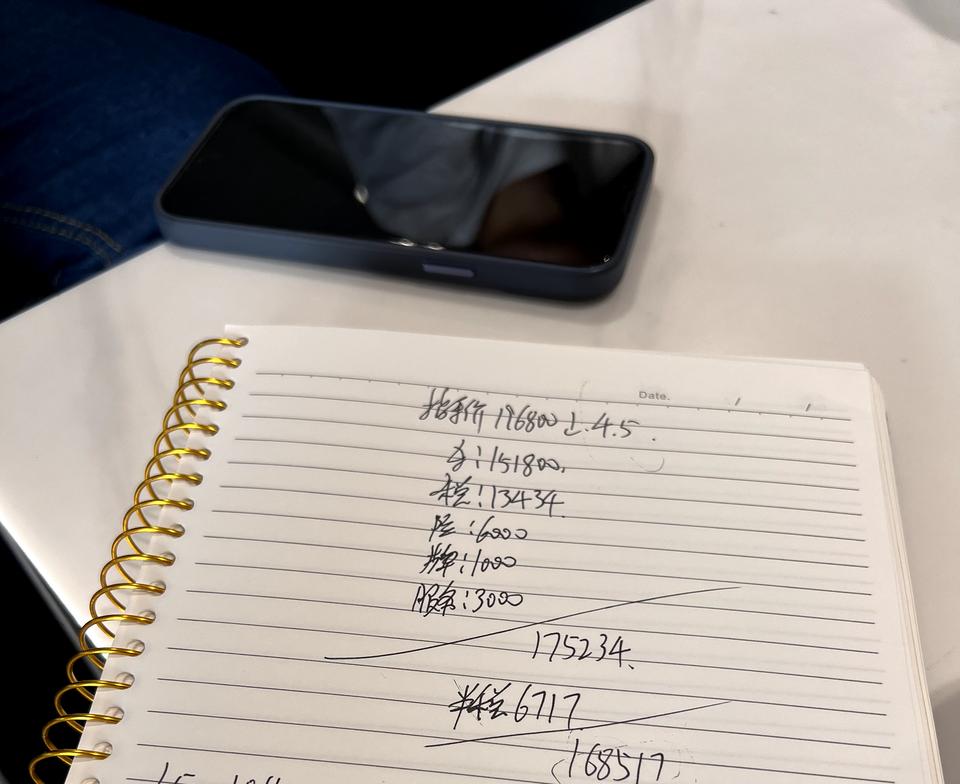 Date. / /
指导价 196800 ↓.4.5.
车:151800.
税:13434.
险:6000
牌:1000
服务:3000
175234.
半税 6717
168517